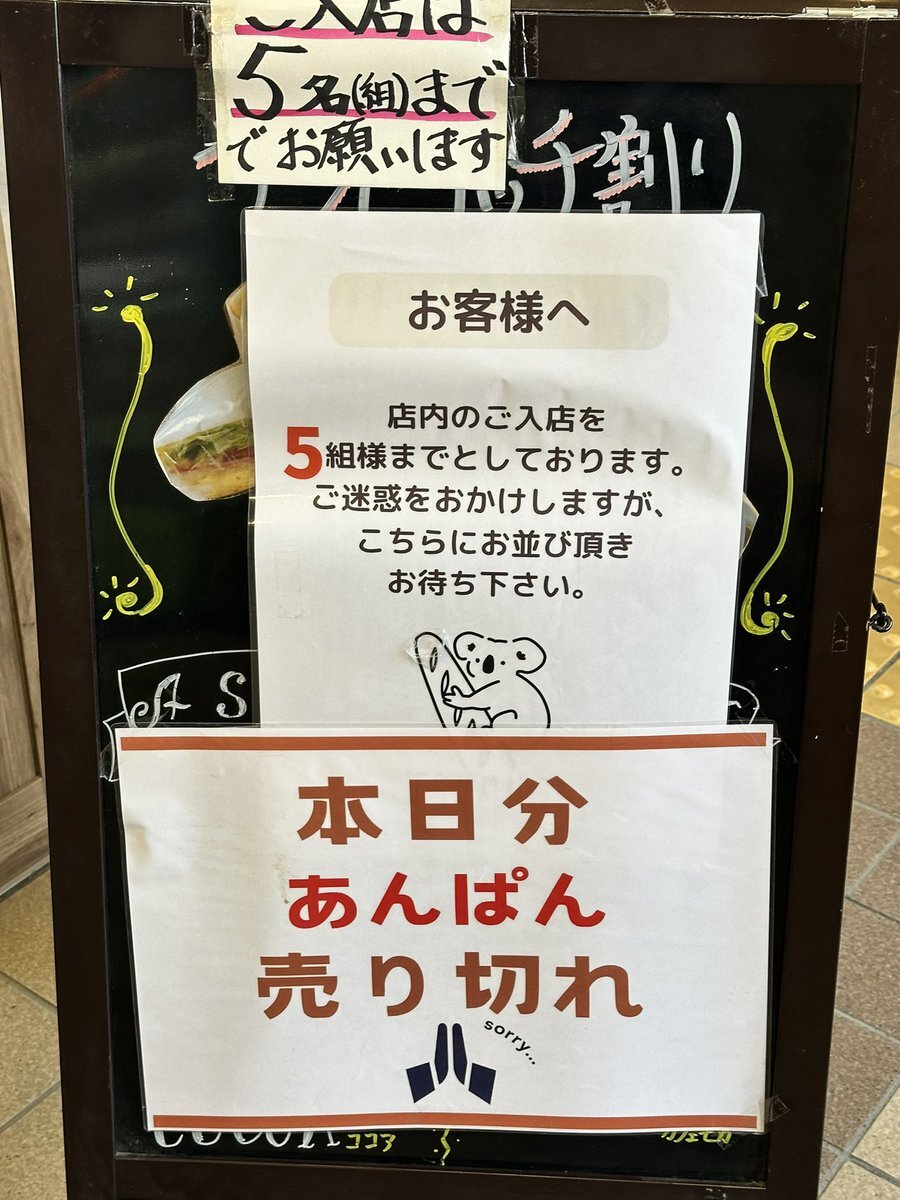 ご入店は
5名(組)まで
でお願いします
チ割り
お客様へ
店内のご入店を
5組様までとしております。
ご迷惑をおかけしますが、
こちらにお並び頂き
お待ち下さい。
A S
本日分
あんぱん
売り切れ
sorry...
ココア
カフェモカ